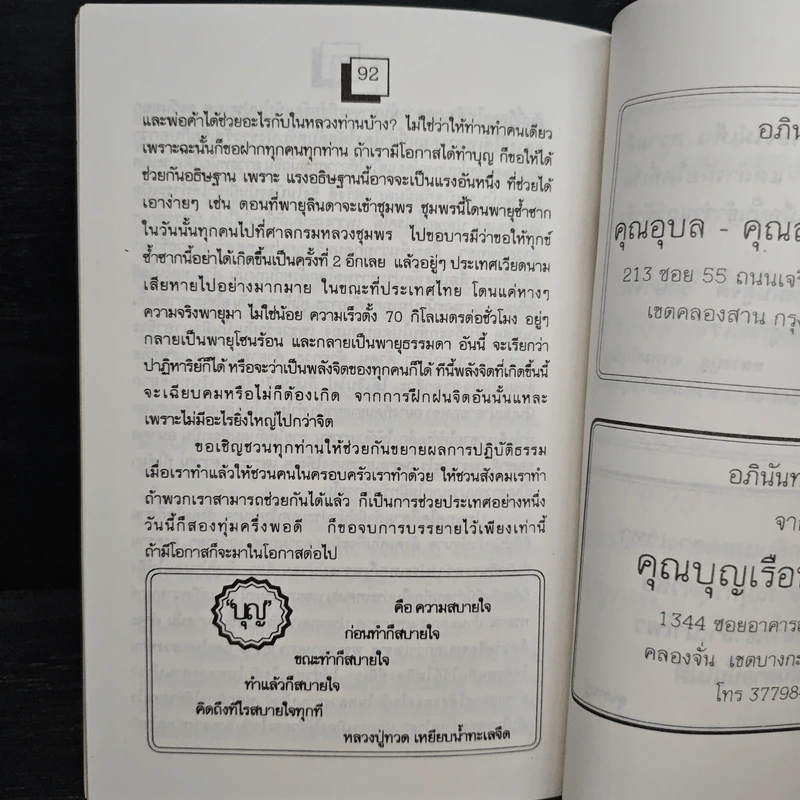 92
และพ่อค้าได้ช่วยอะไรกับในหลวงท่านบ้าง? ไม่ใช่ว่าให้ท่านทำคนเดียว
เพราะฉะนั้นก็ขอฝากทุกคนทุกท่าน ถ้าเรามีโอกาสได้ทำบุญ ก็ขอให้ได้
ช่วยกันอธิษฐาน เพราะ แรงอธิษฐานนี้อาจจะเป็นแรงอันหนึ่ง ที่ช่วยได้
เอาง่ายๆ เช่น ตอนที่พายุลินดาจะเข้าชุมพร ชุมพรนี้โดนพายุซ้ำซาก
ในวันนั้นทุกคนไปที่ศาลกรมหลวงชุมพร ไปขอบารมีว่าขอให้ทุกข์
ซ้ำซากนี้อย่าได้เกิดขึ้นเป็นครั้งที่ 2 อีกเลย แล้วอยู่ๆ ประเทศเวียดนาม
เสียหายไปอย่างมากมาย ในขณะที่ประเทศไทย โดนแค่หางๆ
ความจริงพายุมา ไม่ใช่น้อย ความเร็วตั้ง 70 กิโลเมตรต่อชั่วโมง อยู่ๆ
กลายเป็นพายุโซนร้อน และกลายเป็นพายุธรรมดา อันนี้ จะเรียกว่า
ปาฏิหาริย์ก็ได้ หรือจะว่าเป็นพลังจิตของทุกคนก็ได้ ทีนี้พลังจิตที่เกิดขึ้นนี้
จะเฉียบคมหรือไม่ก็ต้องเกิด จากการฝึกฝนจิตอันนั้นแหละ
เพราะไม่มีอะไรยิ่งใหญ่ไปกว่าจิต
ขอเชิญชวนทุกท่านให้ช่วยกันขยายผลการปฏิบัติธรรม
เมื่อเราทำแล้วให้ชวนคนในครอบครัวเราทำด้วย ให้ชวนสังคมเราทำ
ถ้าพวกเราสามารถช่วยกันได้แล้ว ก็เป็นการช่วยประเทศอย่างหนึ่ง
วันนี้ก็สองทุ่มครึ่งพอดี ก็ขอจบการบรรยายไว้เพียงเท่านี้
ถ้ามีโอกาสก็จะมาในโอกาสต่อไป
"บุญ" คือ ความสบายใจ
ก่อนทำก็สบายใจ
ขณะทำก็สบายใจ
ทำแล้วก็สบายใจ
คิดถึงทีไรสบายใจทุกที
หลวงปู่ทวด เหยียบน้ำทะเลจืด
อภินั
คุณอุบล - คุณ
213 ซอย 55 ถนนเจริ
เขตคลองสาน กรุง
อภินันท
จา
คุณบุญเรือ
1344 ซอยอาคาร
คลองจั่น เขตบางกะ
โทร 37798